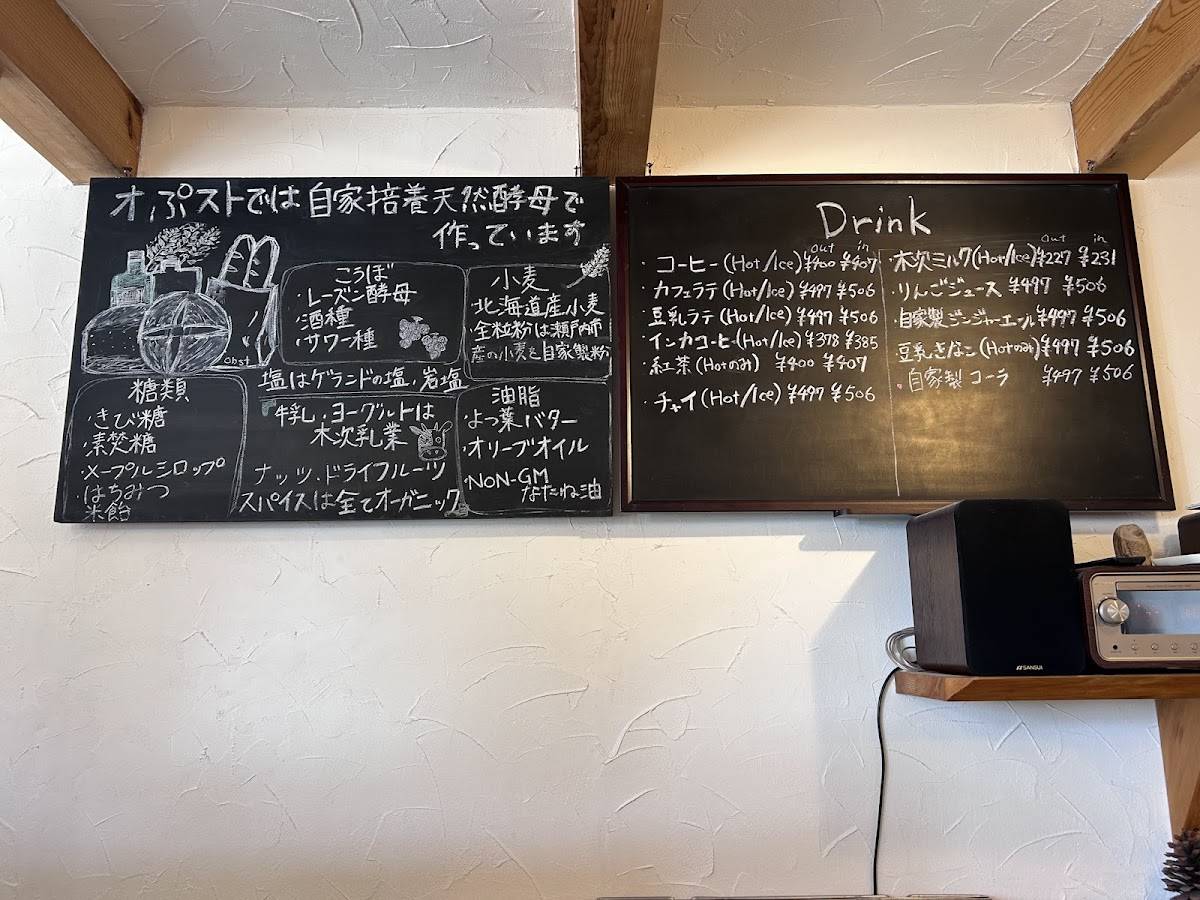 オぷストでは自家培養天然酵母で
作っています
obst
こうぼ
・レーズン酵母
・酒種
・サワー種
小麦
北海道産小麦
・全粒粉は瀬戸内市
産の小麦を自家製粉
塩はゲランドの塩、岩塩
糖類
・きび糖
・素焚糖
・メープルシロップ
・はちみつ
米飴
牛乳、ヨーグルトは
木次乳業
ナッツ、ドライフルーツ
スパイスは全てオーガニック
油脂
・よつ葉バター
・オリーブオイル
・NON-GM
なたね油
Drink
out in
・コーヒー(Hot/Ice) ¥400 ¥407
・カフェラテ(Hot/Ice) ¥497 ¥506
・豆乳ラテ(Hot/Ice) ¥497 ¥506
・インカコーヒー(Hot/Ice) ¥378 ¥385
・紅茶(Hotのみ) ¥400 ¥407
・チャイ(Hot/Ice) ¥497 ¥506
out in
・木次ミルク(Hot/Ice) ¥227 ¥231
・りんごジュース ¥497 ¥506
・自家製ジンジャーエール ¥497 ¥506
・豆乳きなこ(Hotのみ) ¥497 ¥506
・自家製コーラ ¥497 ¥506
SANSUI